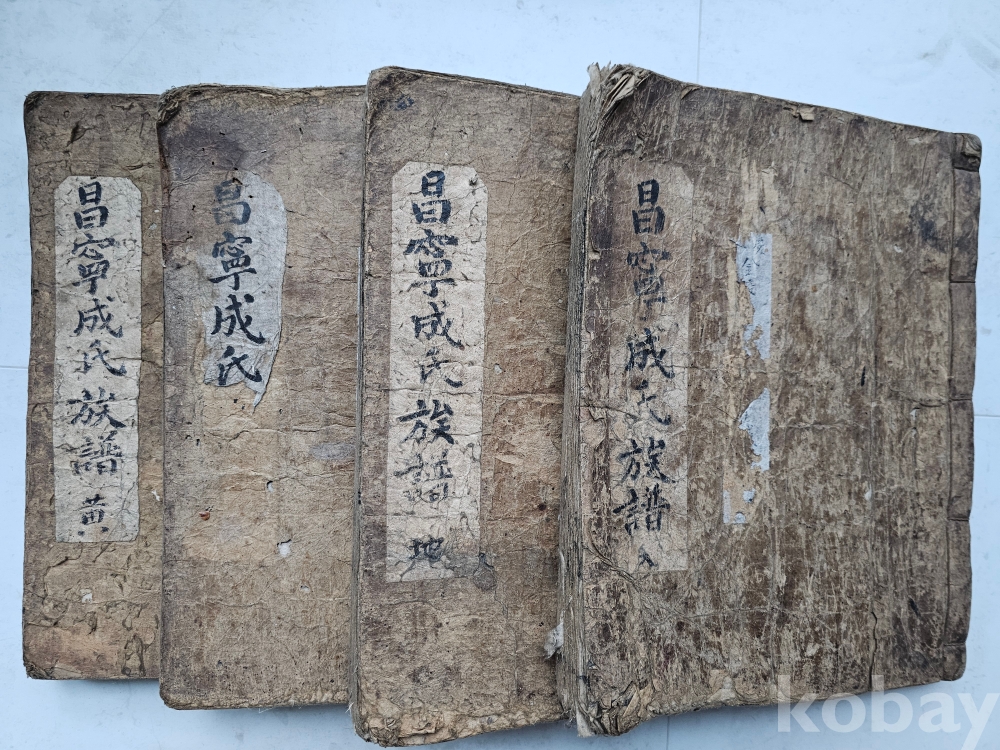 昌寧成氏族譜 黄
昌寧成氏
昌寧成氏族譜 地
昌寧成氏族譜
kobay